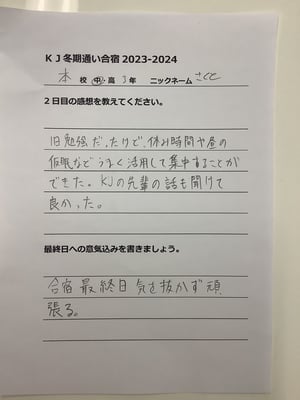 KJ冬期通い合宿 2023-2024
本 校 中・高 3年 ニックネーム さくと
2日目の感想を教えてください。
1日勉強だったけど、休み時間や昼の
仮眠などうまく活用して集中することが
できた。KJの先輩の話も聞けて
良かった。
最終日への意気込みを書きましょう。
合宿最終日気を抜かず頑
張る。